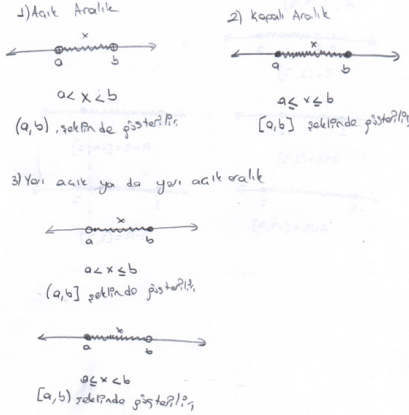 1) Açık Aralık
x
a b
a < x < b
(a,b) şeklinde gösterilir.
2) Kapalı Aralık
x
a b
a ≤ x ≤ b
[a,b] şeklinde gösterilir.
3) Yarı açık ya da yarı açık aralık
x
a b
a < x ≤ b
(a,b] şeklinde gösterilir.
x
a b
a ≤ x < b
[a,b) şeklinde gösterilir.